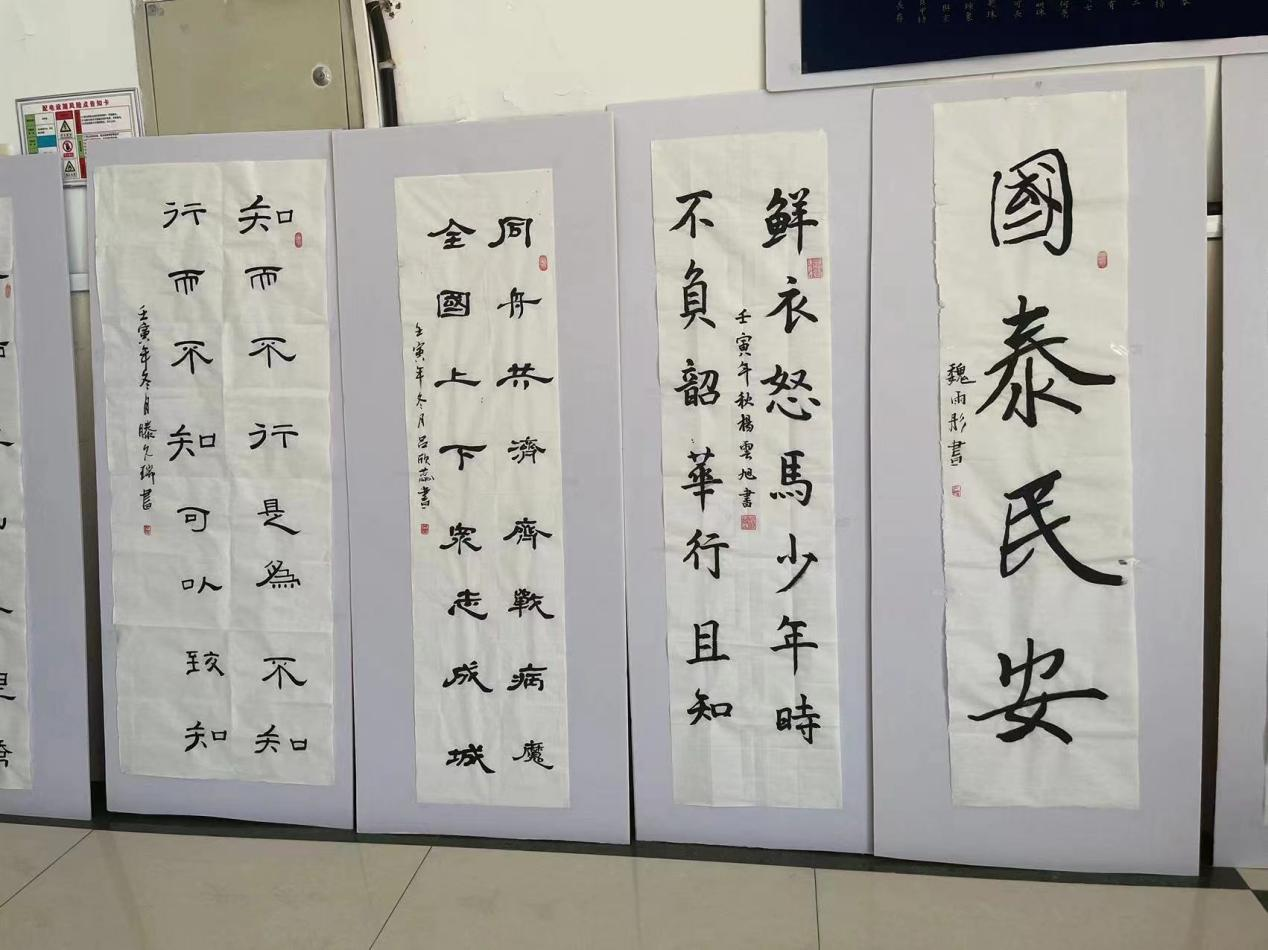 國泰民安
魏雨彤書
鲜衣怒馬少年時
不負韶華行且知
壬寅年秋楊雲旭書
同舟共濟齊戰病魔
全國上下衆志成城
壬寅年冬月吕欣蕊書
知而不行是為不知
行而不知可以致知
壬寅年冬月滕久瑞書
配电设施风险点告知卡